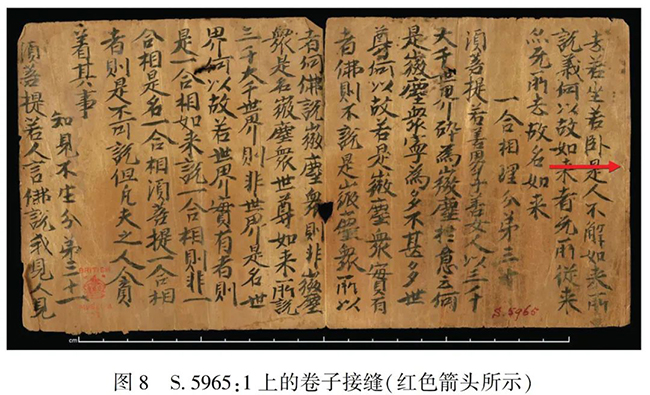 去若坐若卧是人不解如来所
說義何以故如来者无所從来
亦无所去故名如来
一合相理分第三十
須菩提若善男子善女人以三千
大千世界碎為微塵於意云何
是微塵衆寧為多不甚多世
尊何以故若是微塵衆實有
者佛則不說是微塵衆所以
者何佛說微塵衆則非微塵
衆是名微塵衆世尊如来所說
三千大千世界則非世界是名世
界何以故若世界實有者則
是一合相如来說一合相則非一
合相是名一合相須菩提一合相
者則是不可說但凡夫之人貪
着其事
知見不生分第三十一
須菩提若人言佛說我見人見
S.5965
cm
图 8 S.5965:1 上的卷子接缝(红色箭头所示)